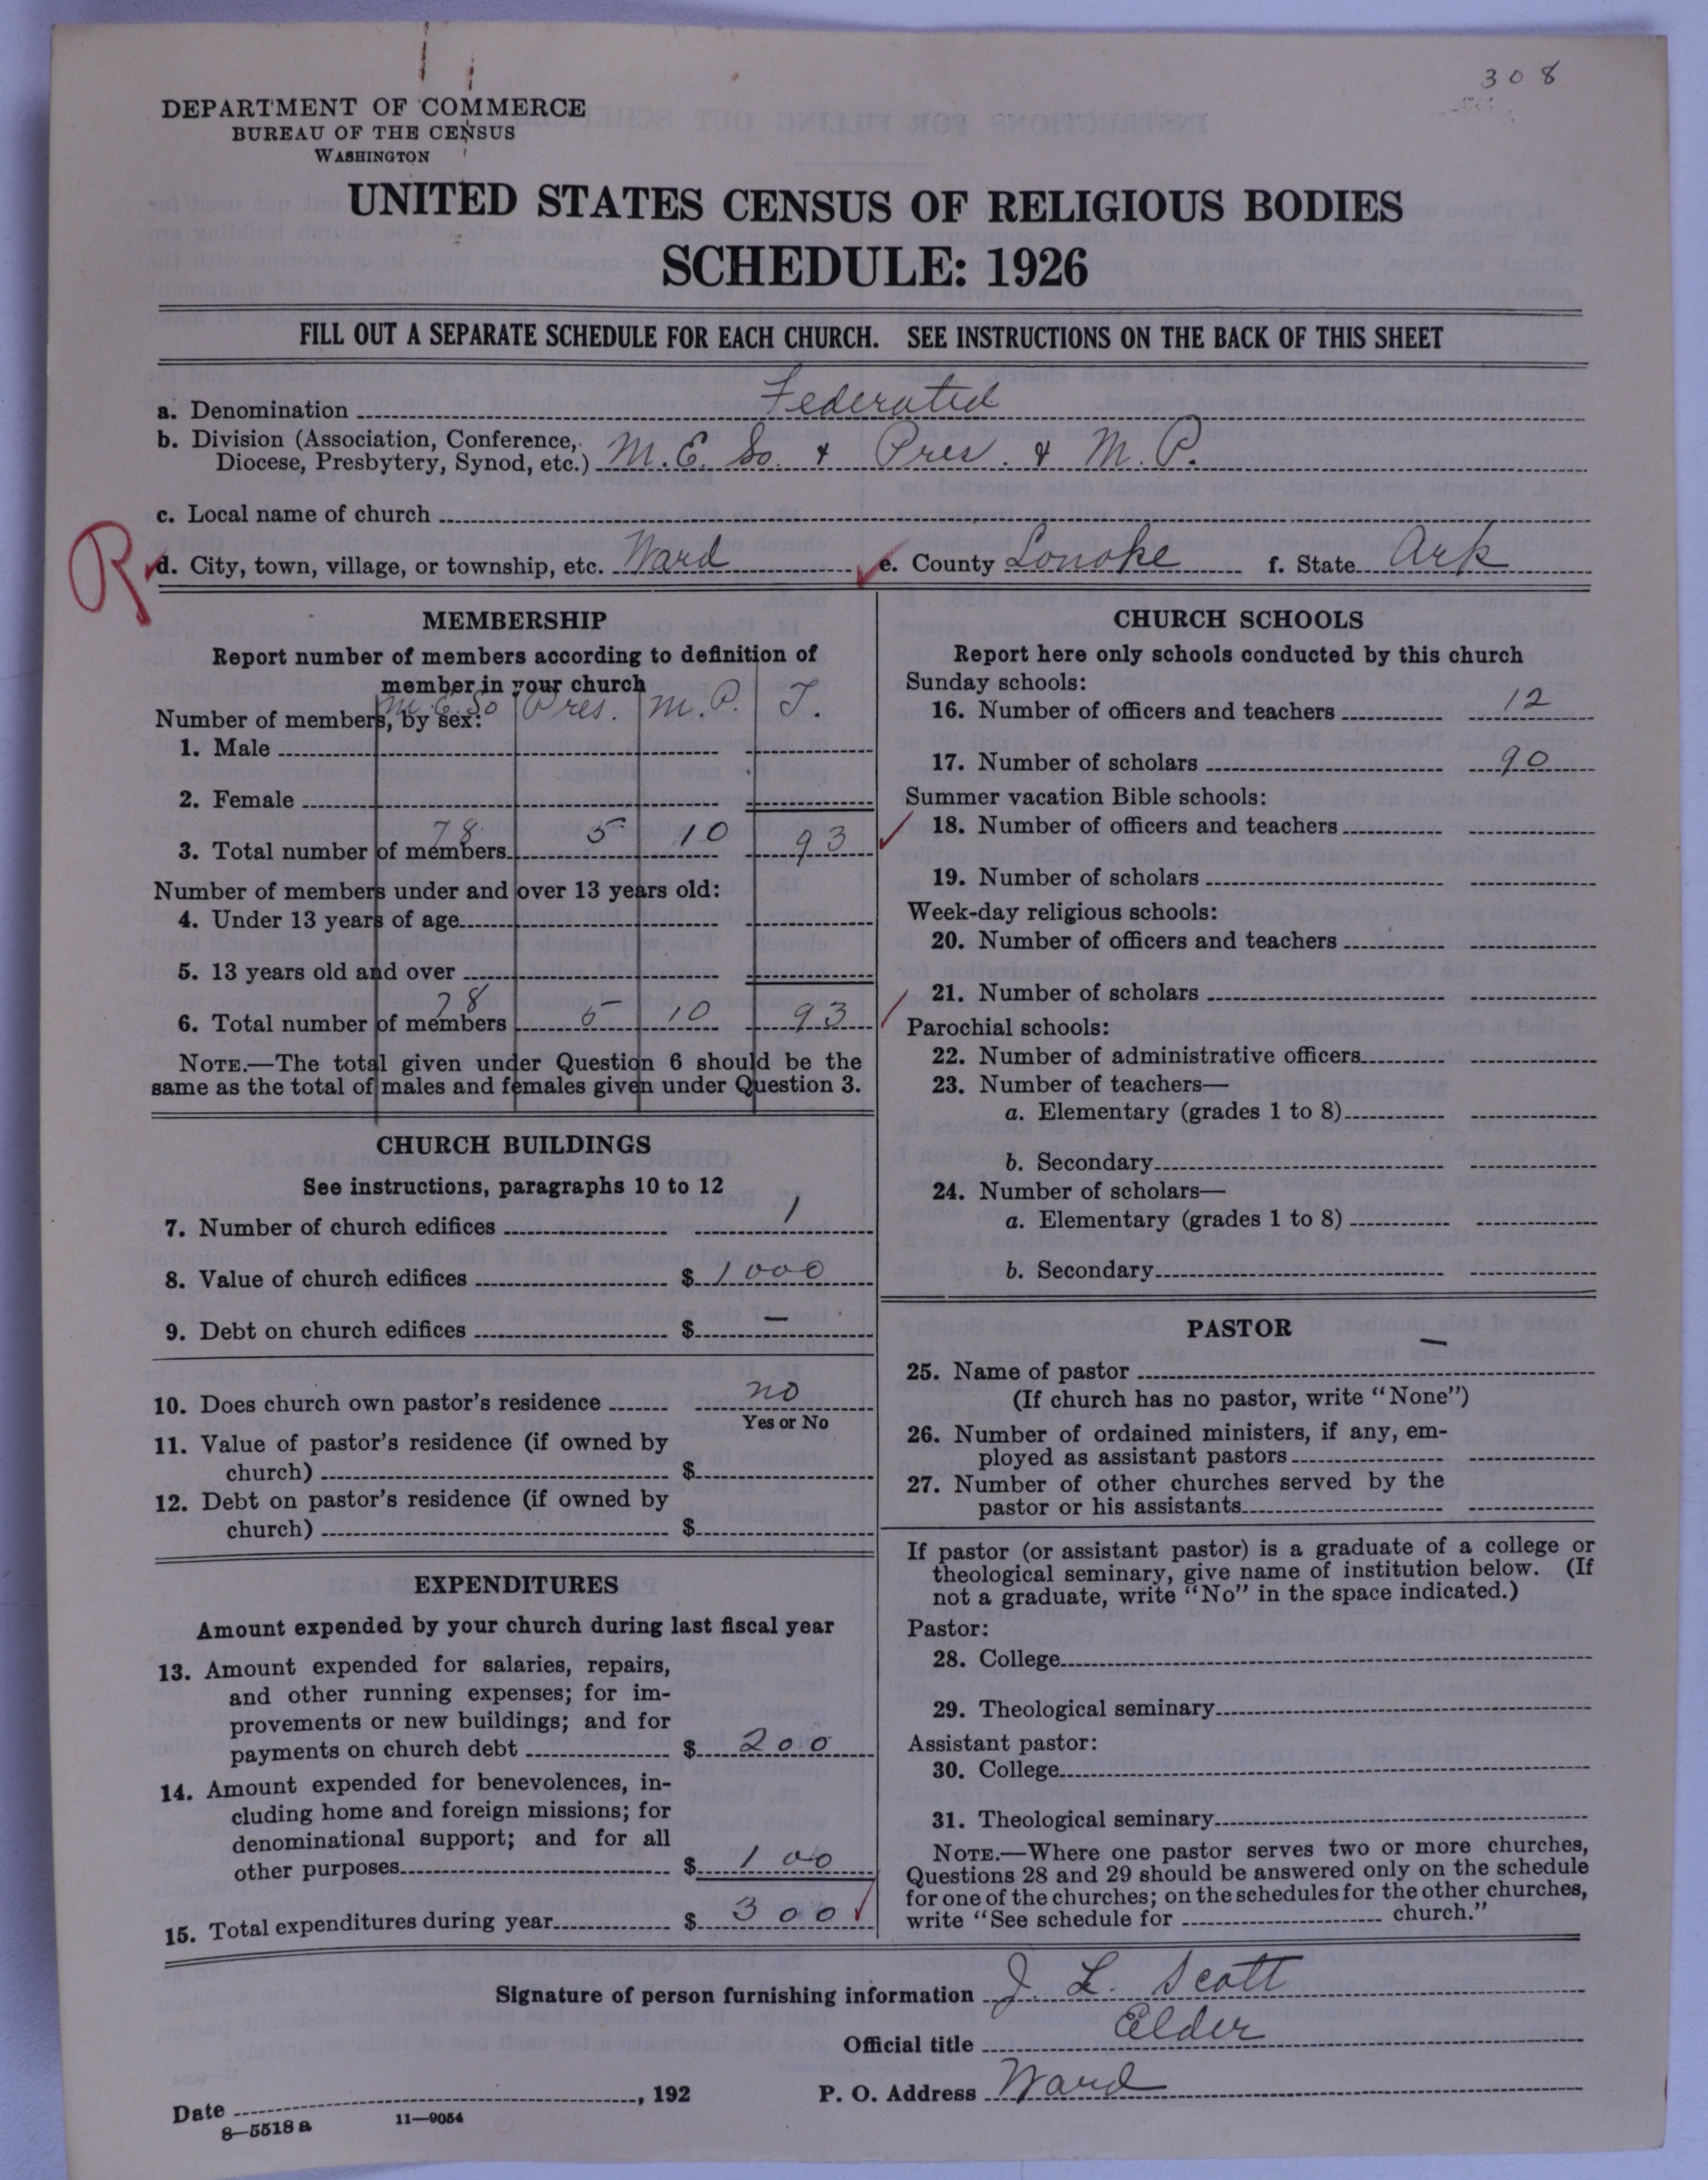 308
DEPARTMENT OF COMMERCE
BUREAU OF THE CENSUS
WASHINGTON
UNITED STATES CENSUS OF RELIGIOUS BODIES
SCHEDULE: 1926
FILL OUT A SEPARATE SCHEDULE FOR EACH CHURCH. SEE INSTRUCTIONS ON THE BACK OF THIS SHEET
a. Denomination Federated
b. Division (Association, Conference,
Diocese, Presbytery, Synod, etc.) M.E. So. & Pres. & M. P.
c. Local name of church
R
d. City, town, village, or township, etc. Ward e. County Lonoke f. State Ark
MEMBERSHIP
Report number of members according to definition of
member in your church
M.E. So Pres. M.P. T.
Number of members, by sex:
1. Male
2. Female
3. Total number of members 78 5 10 93
Number of members under and over 13 years old:
4. Under 13 years of age
5. 13 years old and over
6. Total number of members 78 5 10 93
NOTE.—The total given under Question 6 should be the
same as the total of males and females given under Question 3.
CHURCH BUILDINGS
See instructions, paragraphs 10 to 12
7. Number of church edifices 1
8. Value of church edifices $ 1000
9. Debt on church edifices $ —
10. Does church own pastor's residence no
Yes or No
11. Value of pastor's residence (if owned by
church) $
12. Debt on pastor's residence (if owned by
church) $
EXPENDITURES
Amount expended by your church during last fiscal year
13. Amount expended for salaries, repairs,
and other running expenses; for im-
provements or new buildings; and for
payments on church debt $ 200
14. Amount expended for benevolences, in-
cluding home and foreign missions; for
denominational support; and for all
other purposes $ 100
15. Total expenditures during year $ 300
CHURCH SCHOOLS
Report here only schools conducted by this church
Sunday schools:
16. Number of officers and teachers 12
17. Number of scholars 90
Summer vacation Bible schools:
18. Number of officers and teachers
19. Number of scholars
Week-day religious schools:
20. Number of officers and teachers
21. Number of scholars
Parochial schools:
22. Number of administrative officers
23. Number of teachers—
a. Elementary (grades 1 to 8)
b. Secondary
24. Number of scholars—
a. Elementary (grades 1 to 8)
b. Secondary
PASTOR
25. Name of pastor —
(If church has no pastor, write "None")
26. Number of ordained ministers, if any, em-
ployed as assistant pastors
27. Number of other churches served by the
pastor or his assistants
If pastor (or assistant pastor) is a graduate of a college or
theological seminary, give name of institution below. (If
not a graduate, write "No" in the space indicated.)
Pastor:
28. College
29. Theological seminary
Assistant pastor:
30. College
31. Theological seminary
NOTE.—Where one pastor serves two or more churches,
Questions 28 and 29 should be answered only on the schedule
for one of the churches; on the schedules for the other churches,
write "See schedule for church."
Signature of person furnishing information J. L. Scott
Official title Elder
Date , 192 P. O. Address Ward
8—5518a 11—9054